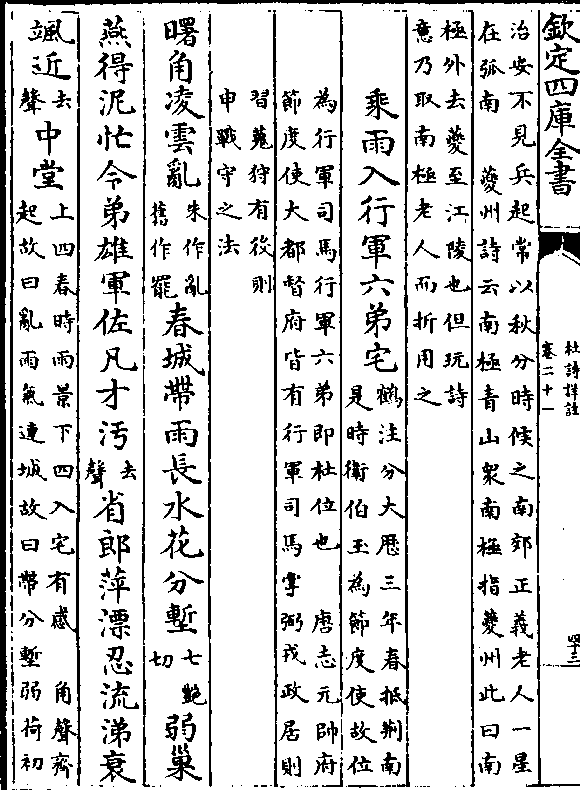 欽定四庫全書
杜詩詳註
卷二十一
四十三
治安不見兵起常以秋分時候之南郊正義老人一星
在弧南 夔州詩云南極青山衆南極指夔州此曰南
極外去夔至江陵也但玩詩
意乃取南極老人而折用之
乘雨入行軍六弟宅
鶴注分大厯三年春抵荆南
是時衛伯玉為節度使故位
為行軍司馬行軍六弟即杜位也 唐志元帥府
節度使大都督府皆有行軍司馬掌弼戎政居則
習蒐狩有役則
申戰守之法
曙角凌雲亂
朱作亂
舊作罷
春城帶雨長水花分塹
七艶
切
弱巢
燕得泥忙令弟雄軍佐凡才汚
去
聲
省郎萍漂忍流涕衰
颯近
去
聲
中堂
上四春時雨景下四入宅有感 角聲齊
起故曰亂雨氣連城故曰帶分塹弱荷初